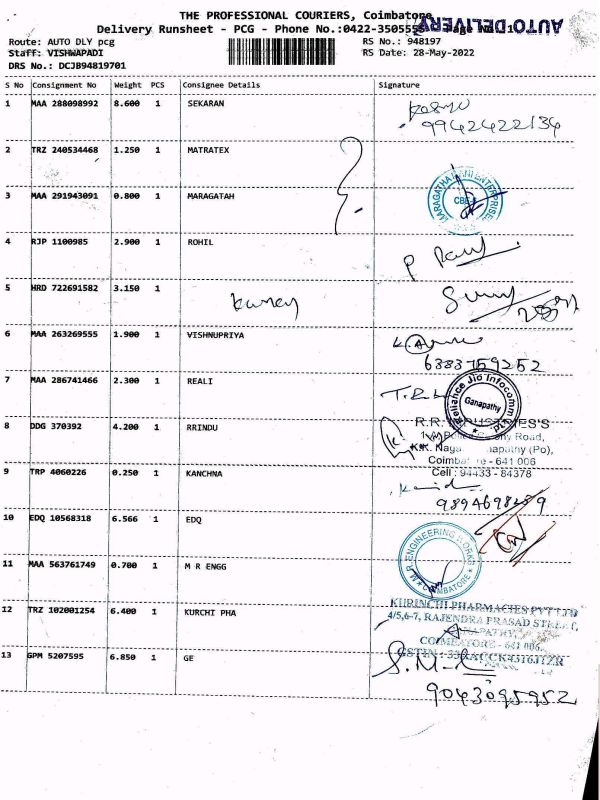 THE PROFESSIONAL COURIERS, Coimbatore
AUTO DELIVERY
Delivery Runsheet - PCG - Phone No.:0422-3505555 Page No.:1
Route: AUTO DLY pcg RS No.: 948197
Staff: VISHWAPADI RS Date: 28-May-2022
DRS No.: DCJB94819701
S No Consignment No Weight PCS Consignee Details Signature
1 MAA 288098992 8.600 1 SEKARAN
9942422134
2 TRZ 240534468 1.250 1 MATRATEX
3 MAA 291943091 0.800 1 MARAGATAH
MARAGATHAMANI ENTERPRISES
CBE
4 RJP 1100985 2.900 1 ROHIL
5 HRD 722691582 3.150 1
Kumar
6 MAA 263269555 1.900 1 VISHNUPRIYA
6383759252
7 MAA 286741466 2.300 1 REALI
Reliance Jio Infocomm Ltd.
Ganapathy
8 DDG 370392 4.200 1 RRINDU
Colony Road,
K.K. Naga
Coimbatore - 641 006
Cell : 94433 - 84378
9 TRP 4060226 0.250 1 KANCHNA
10 EDQ 10568318 6.566 1 EDQ
11 MAA 563761749 0.700 1 M R ENGG
M.R. ENGINEERING WORKS
COIMBATORE
12 TRZ 102001254 6.400 1 KURCHI PHA
KURINCHI PHARMACIES PVT LTD
4/5,6-7, RAJENDRA PRASAD STREET,
COIMBATORE - 641 006.
13 GPM 5207595 6.850 1 GE
9043095952